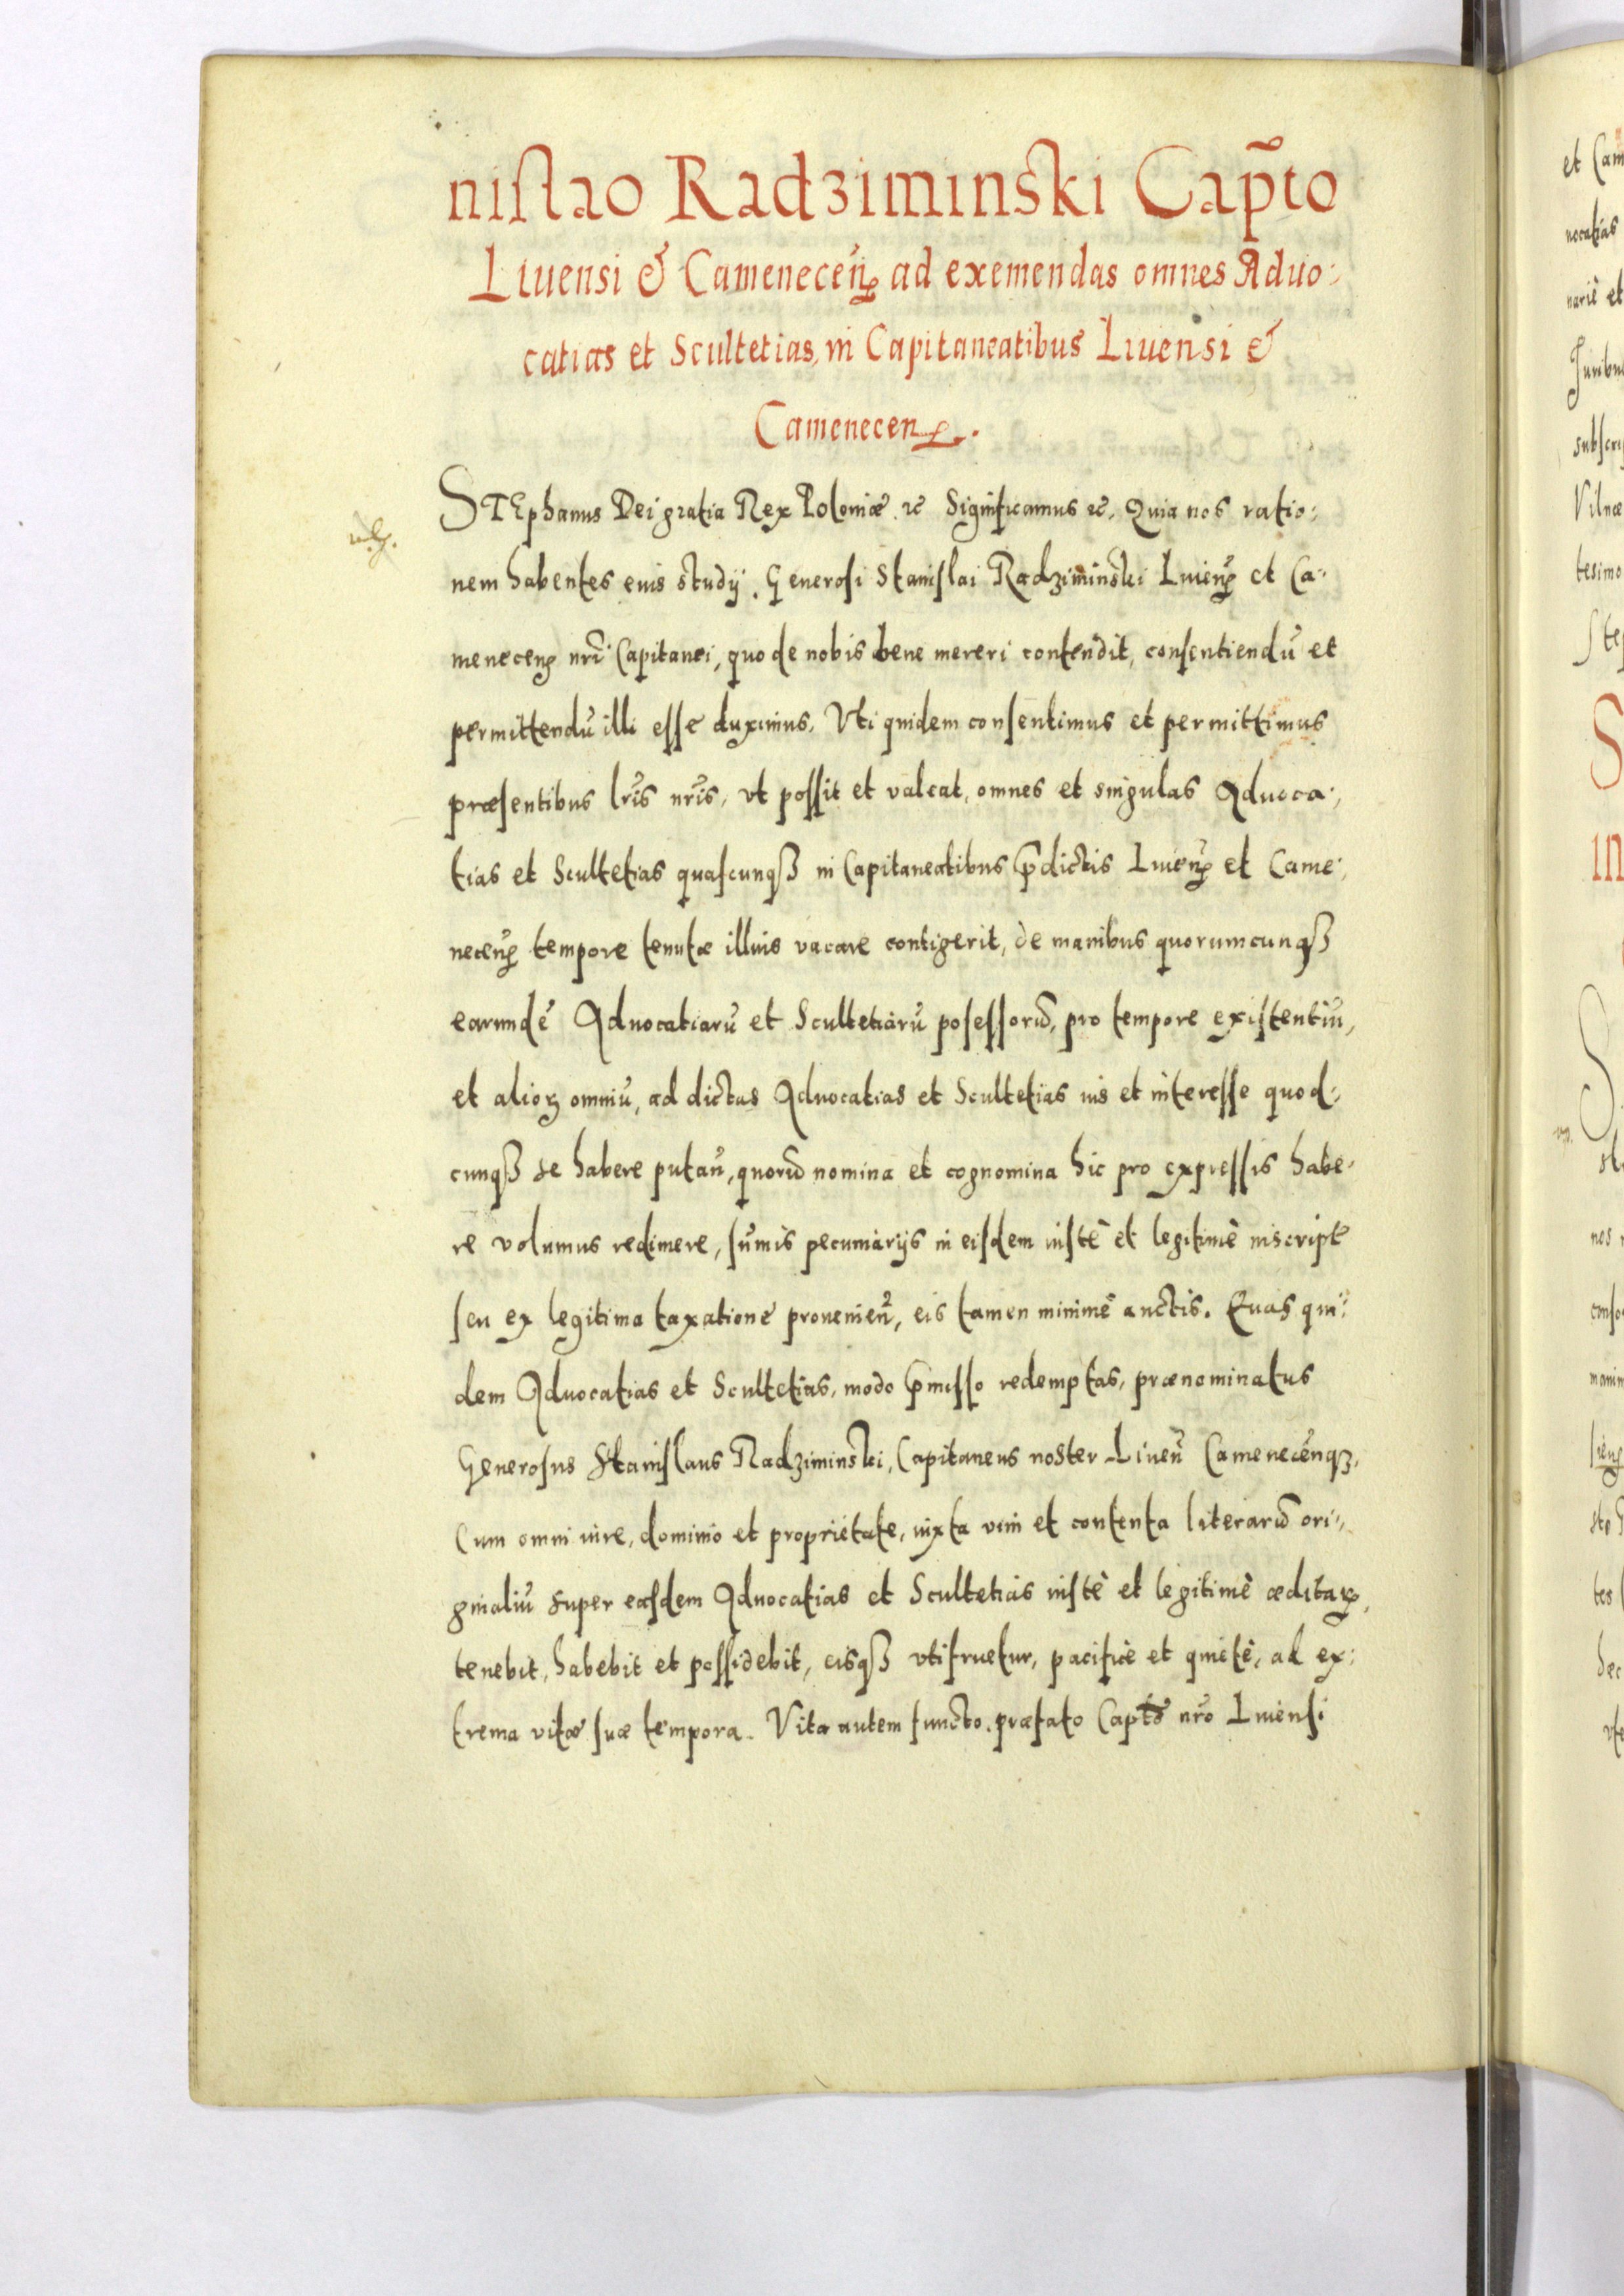 niſlao Radziminski Capto
Liuensi & Camenecen̄ ad exemendas omnes Aduo:
catias et Scultetias, in Capitaneatibus Liuensi &
Camenecen.
STEphanus Dei gratia Rex Poloniæ ꝛc Significamus ꝛc. Quia nos ratio:
nem habentes euis studij. Generosi Stanislai Radziminski Liuen̄ et Ca:
menecen̄ nrī Capitanei, quo de nobis bene mereri contendit, consentiendū et
permittendū illi esse duximus, Vti quidem consentimus et permittimus
præsentibus lrīs nrīs, vt possit et valeat, omnes et singulas Aduoca:
tias et Scultetias quascunqꝫ in Capitaneatibus p̄dictis Liuen̄ et Came:
necen̄ tempore tenutæ illius vacare contigerit, de manibus quorumcunqꝫ
earundē Aduocatiarū et Scultetiarū posessorū, pro tempore existentiū,
et alioꝝ omniū, ad dictas Aduocatias et Scultetias ius et interesse quod:
cunqꝫ se habere putan̄, quorū nomina et cognomina hic pro expressis habe:
re volumus redimere, sum̄is pecuniarijs in eisdem iustè et legitimè inscript
seu ex legitima taxatione prouenien̄, eis tamen minimè auctis. Quas qui:
dem Aduocatias et Scultetias, modo p̄misso redemptas, prænominatus
Generosus Stanislaus Radziminski, Capitaneus noster Liuen̄ Camenecen̄qꝫ,
Cum omni iure, dominio et proprietate, iuxta vim et contenta literarū ori:
ginaliū super easdem Aduocatias et Scultetias iustè et legitimè æditaꝝ,
tenebit, habebit et possidebit, eisqꝫ vtifruetur, pacificè et quietè, ad ex:
trema vitæ suæ tempora. Vita autem functo, præfato Capto nrō Liuensi